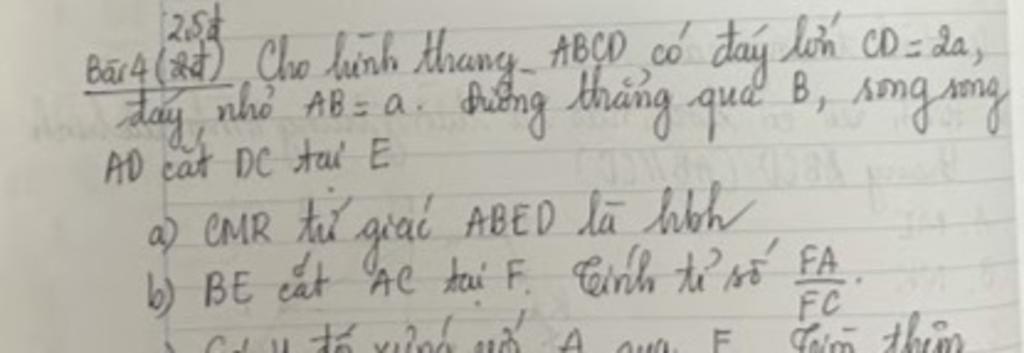 2,5đ
Bài 4 (2đ) Cho hình thang ABCD có đáy lớn CD = 2a,
đáy nhỏ AB = a. Đường thẳng qua B, song song
AD cắt DC tại E
a) CMR tứ giác ABED là hbh
b) BE cắt AC tại F. Tính tỉ số FA/FC.
đối xứng với A qua E. Tìm thêm